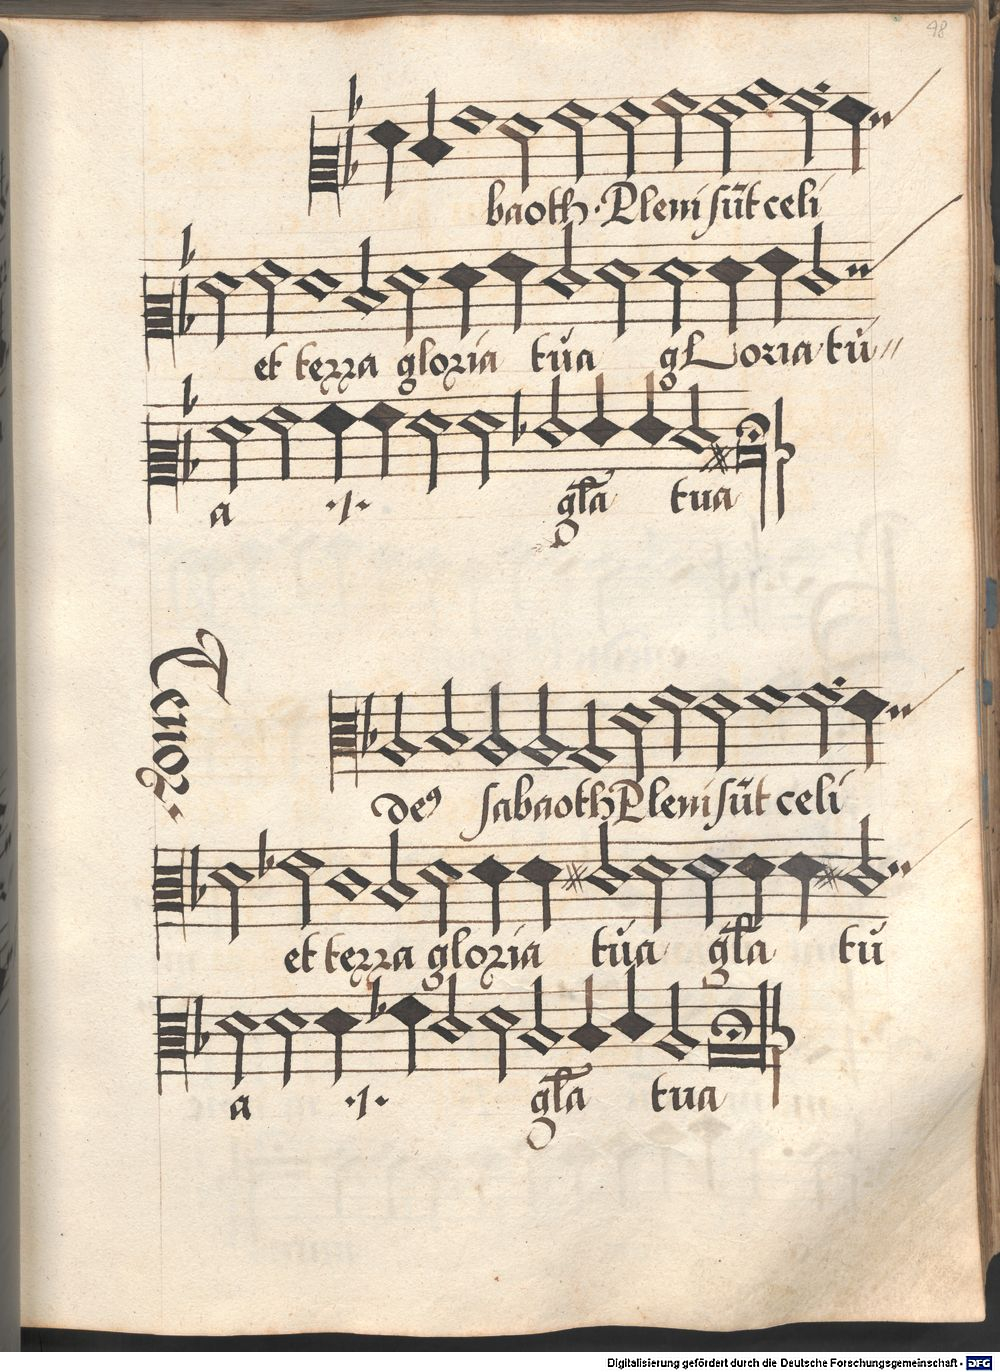 98
baoth · Pleni sūt celi
et terra gloria tua gLoria tu
a ·1· gl̄a tua
Tenor
deꝰ sabaoth Pleni sūt celi
et terra gloria tua gl̄a tu
a ·1· gl̄a tua
Digitalisierung gefördert durch die Deutsche Forschungsgemeinschaft - DFG